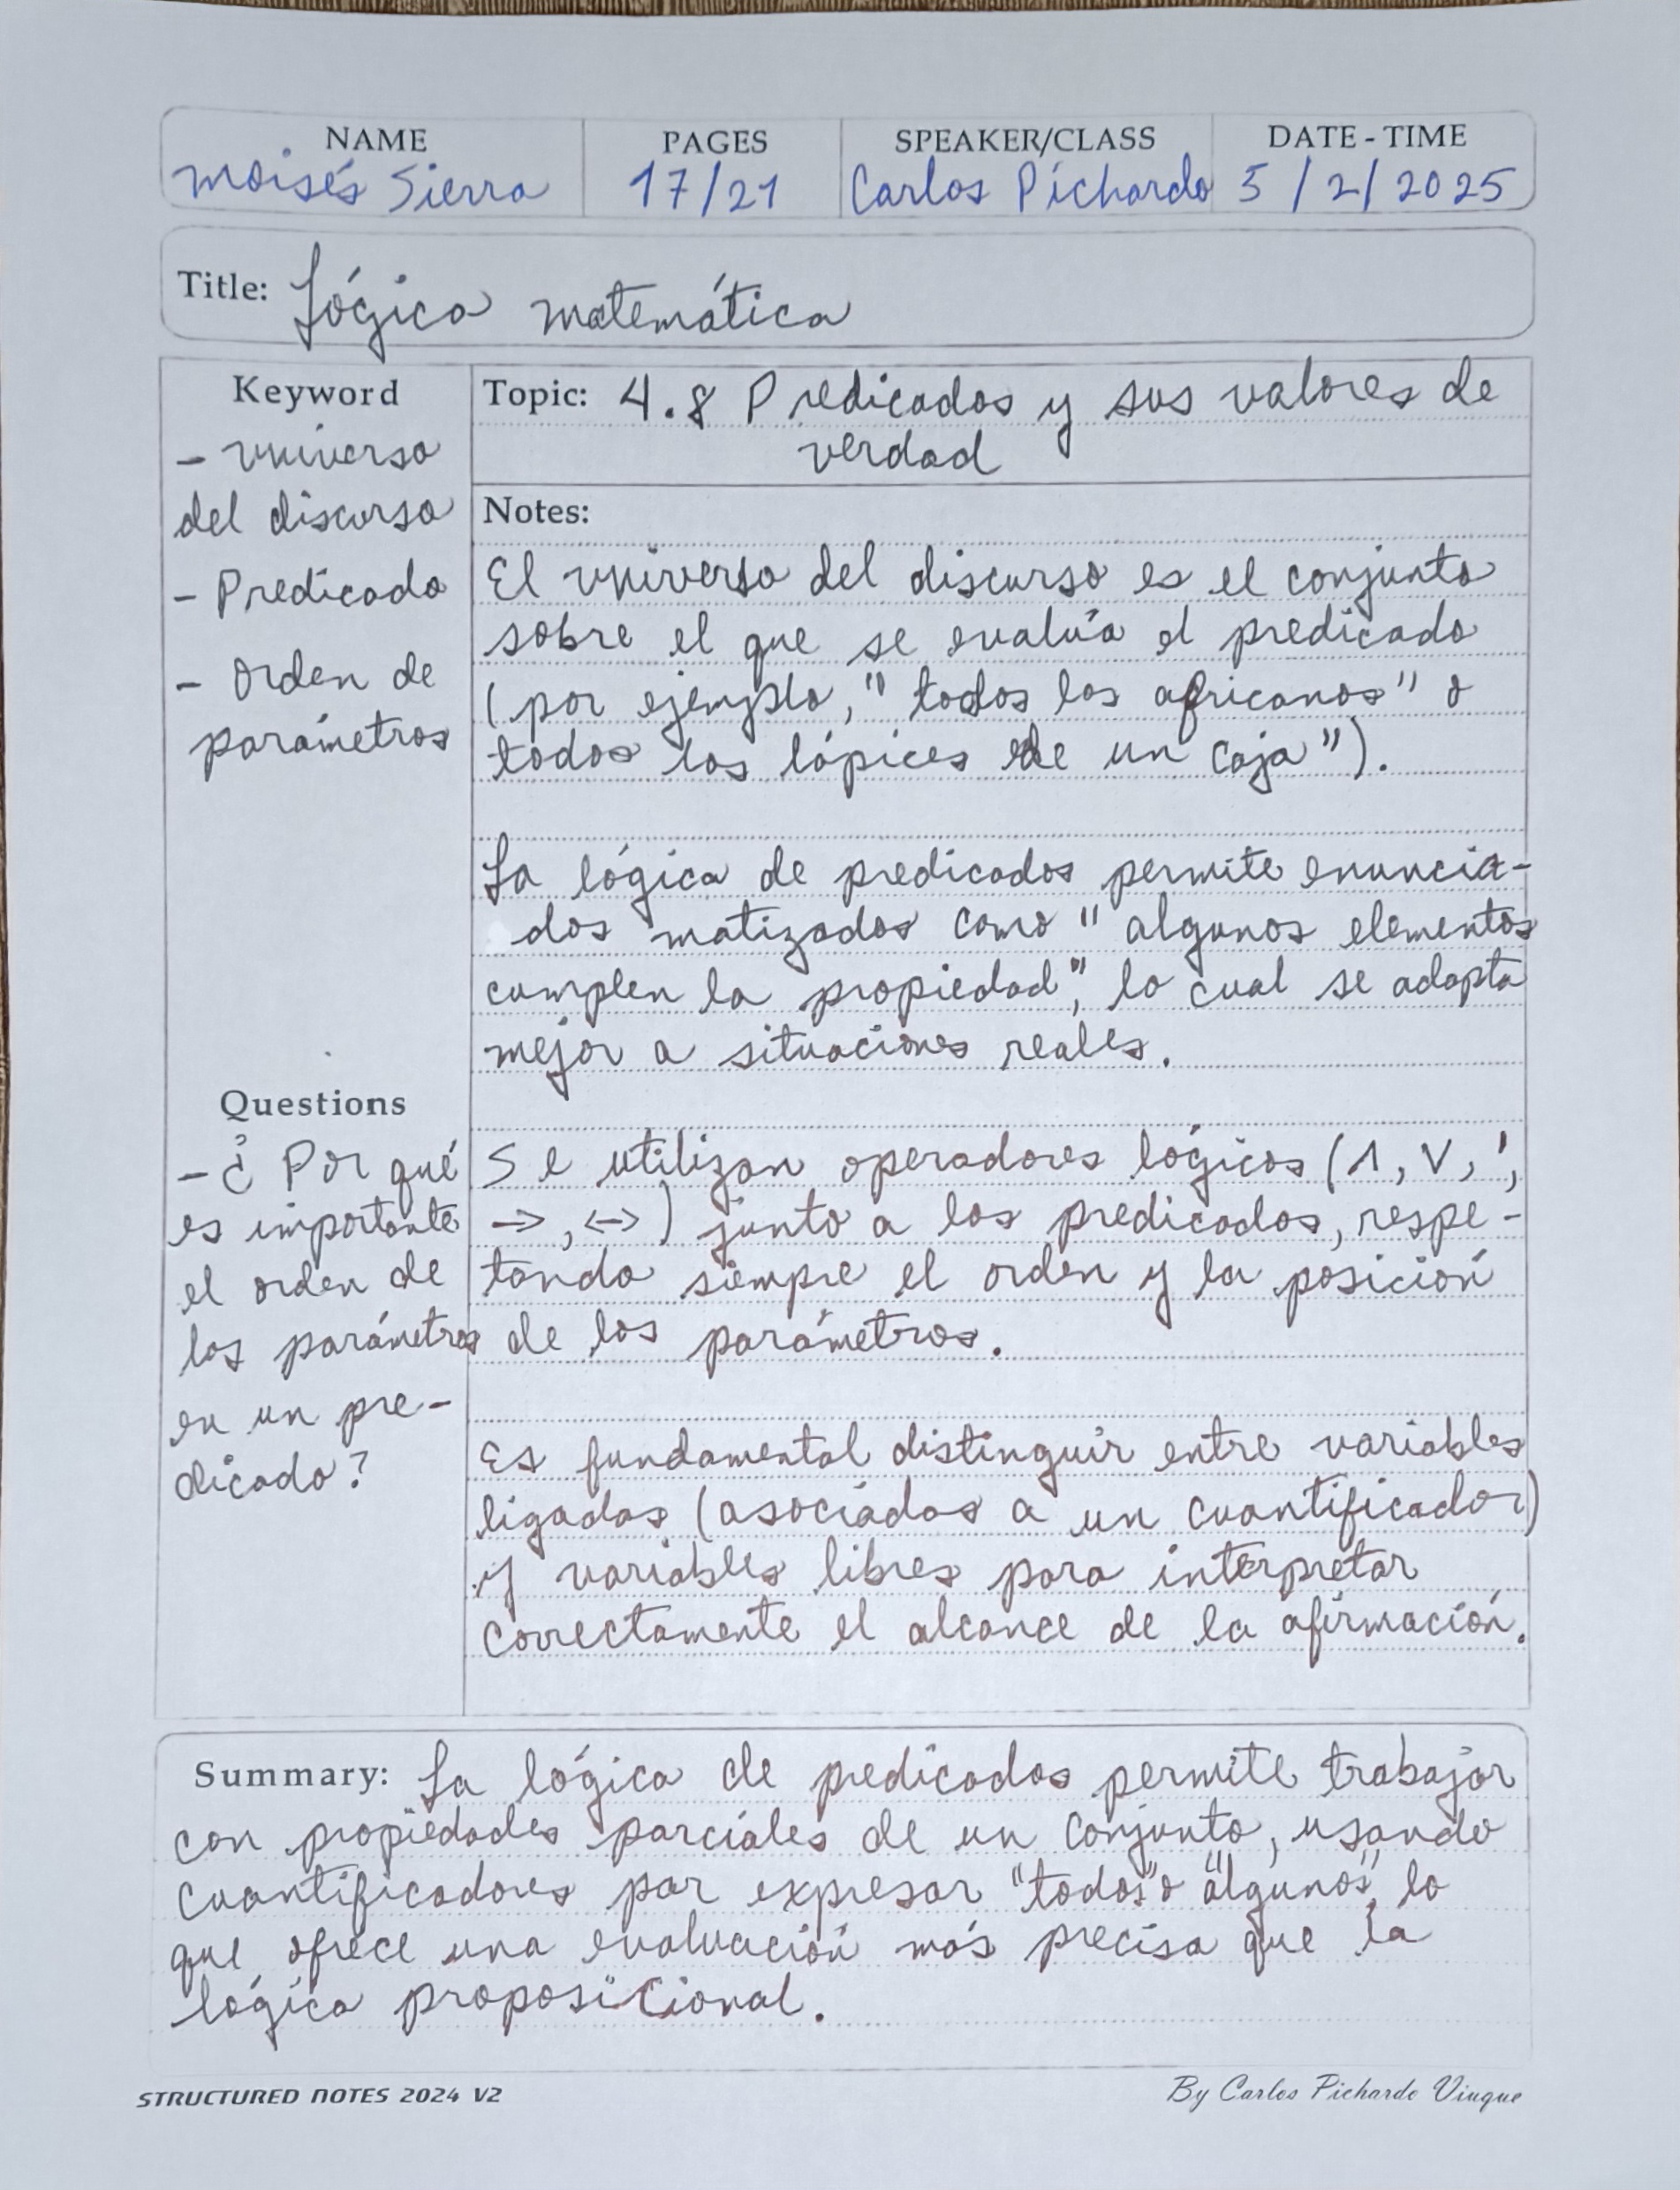 NAME PAGES SPEAKER/CLASS DATE - TIME
Moisés Sierra 17/21 Carlos Pichardo 5/2/2025
Title: Lógica matemática
Keyword
- universo
del discurso
- Predicado
- Orden de
parámetros
Questions
- ¿Por qué
es importante
el orden de
los parámetros
en un pre-
dicado?
Topic: 4.8 Predicados y sus valores de
verdad
Notes:
El universo del discurso es el conjunto
sobre el que se evalúa el predicado
(por ejemplo, "todos los africanos" o
todos los lápices de un caja").
La lógica de predicados permite enuncia-
dos matizados como "algunos elementos
cumplen la propiedad", lo cual se adapta
mejor a situaciones reales.
Se utilizan operadores lógicos (∧, ∨, ',
→, ↔) junto a los predicados, respe-
tando siempre el orden y la posición
de los parámetros.
Es fundamental distinguir entre variables
ligadas (asociadas a un cuantificador)
y variables libres para interpretar
correctamente el alcance de la afirmación.
Summary: La lógica de predicados permite trabajar
con propiedades parciales de un conjunto, usando
cuantificadores par expresar "todos" o "algunos", lo
que ofrece una evaluación más precisa que la
lógica proposicional.
STRUCTURED NOTES 2024 V2
By Carlos Pichardo Viuque